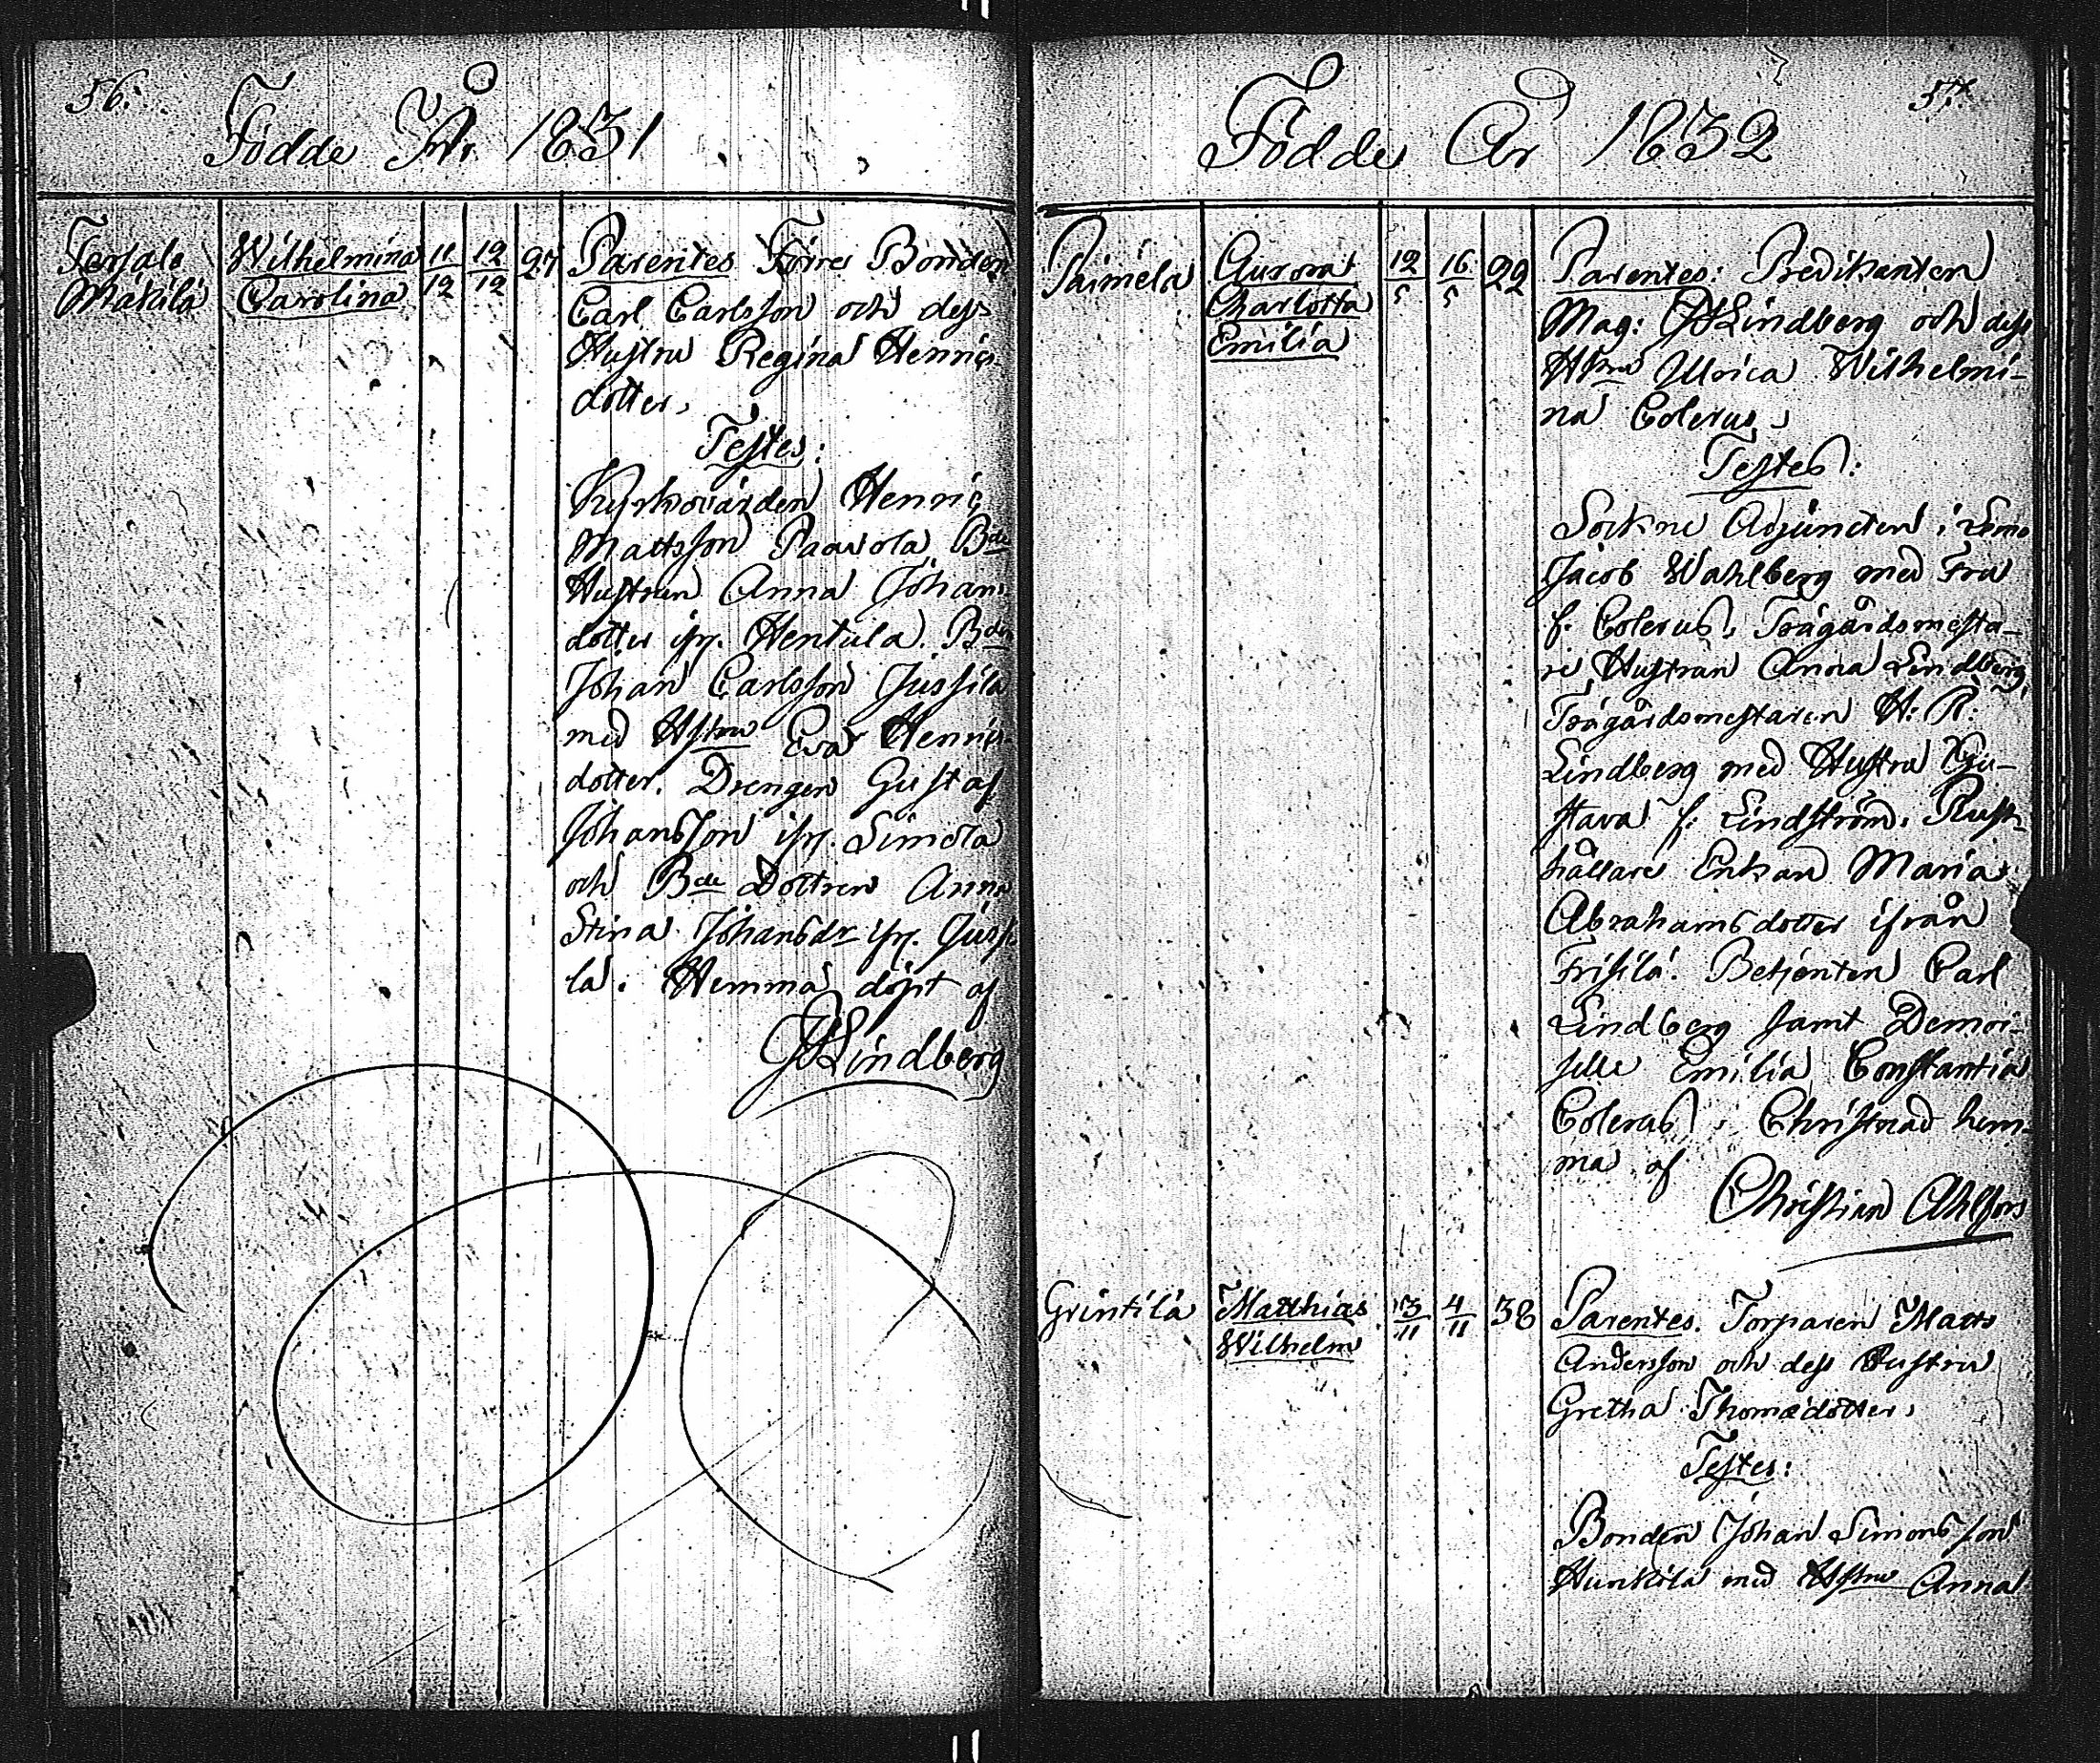 56.
Födde År 1831
Tersala Wilhelmina 11/12 12/12 27 Parentes Förre Bonden
Mäkilä Carolina Carl Carlsson och dess
Hustru Regina Henrics
dotter,
Testes:
Kyrkovärden Henric
Mattsson Paavola, Bde
Hustrun Anna Johans
dotter ifr. Hentula. Bden
Johan Carlsson Jussila
med Hstru Eva Henrics
dotter. Drengen Gustaf
Johansson ifr. Simola
och Bde Dottren Anna
Stina Johansdr ifr. Jussi
la. Hemma döpt af
Lindberg
57.
Födde År 1832
Paimela Aurora 12/5 16/5 22 Parentes: Predikanten
Charlotta Mag: Lindberg och dess
Emilia Hstru Ulrica Wilhelmi-
na Colerus,
Testes:
Sockne Adjuncten i Lemo
Jacob Wahlberg med Fru
f. Colerus, Trägårdsmesta-
re Hustrun Anna Lindberg,
Trägårdsmestaren H: R:
Lindberg med Hustru Gu-
stava f: Lindström. Rust-
hållare Enkan Maria
Abrahamsdotter ifrån
Frisilä. Betjenten Carl
Lindberg samt Demoi-
selle Emilia Constantia
Colerus, Christnad hem-
ma af
Christian Ahlfors
Grintilä Matthias 3/11 4/11 38 Parentes. Torparen Matts
Wilhelm Andersson och dess Hustru
Gretha Thomædotter,
Testes:
Bonden Johan Simonsson
Hunkila med Hstru Anna